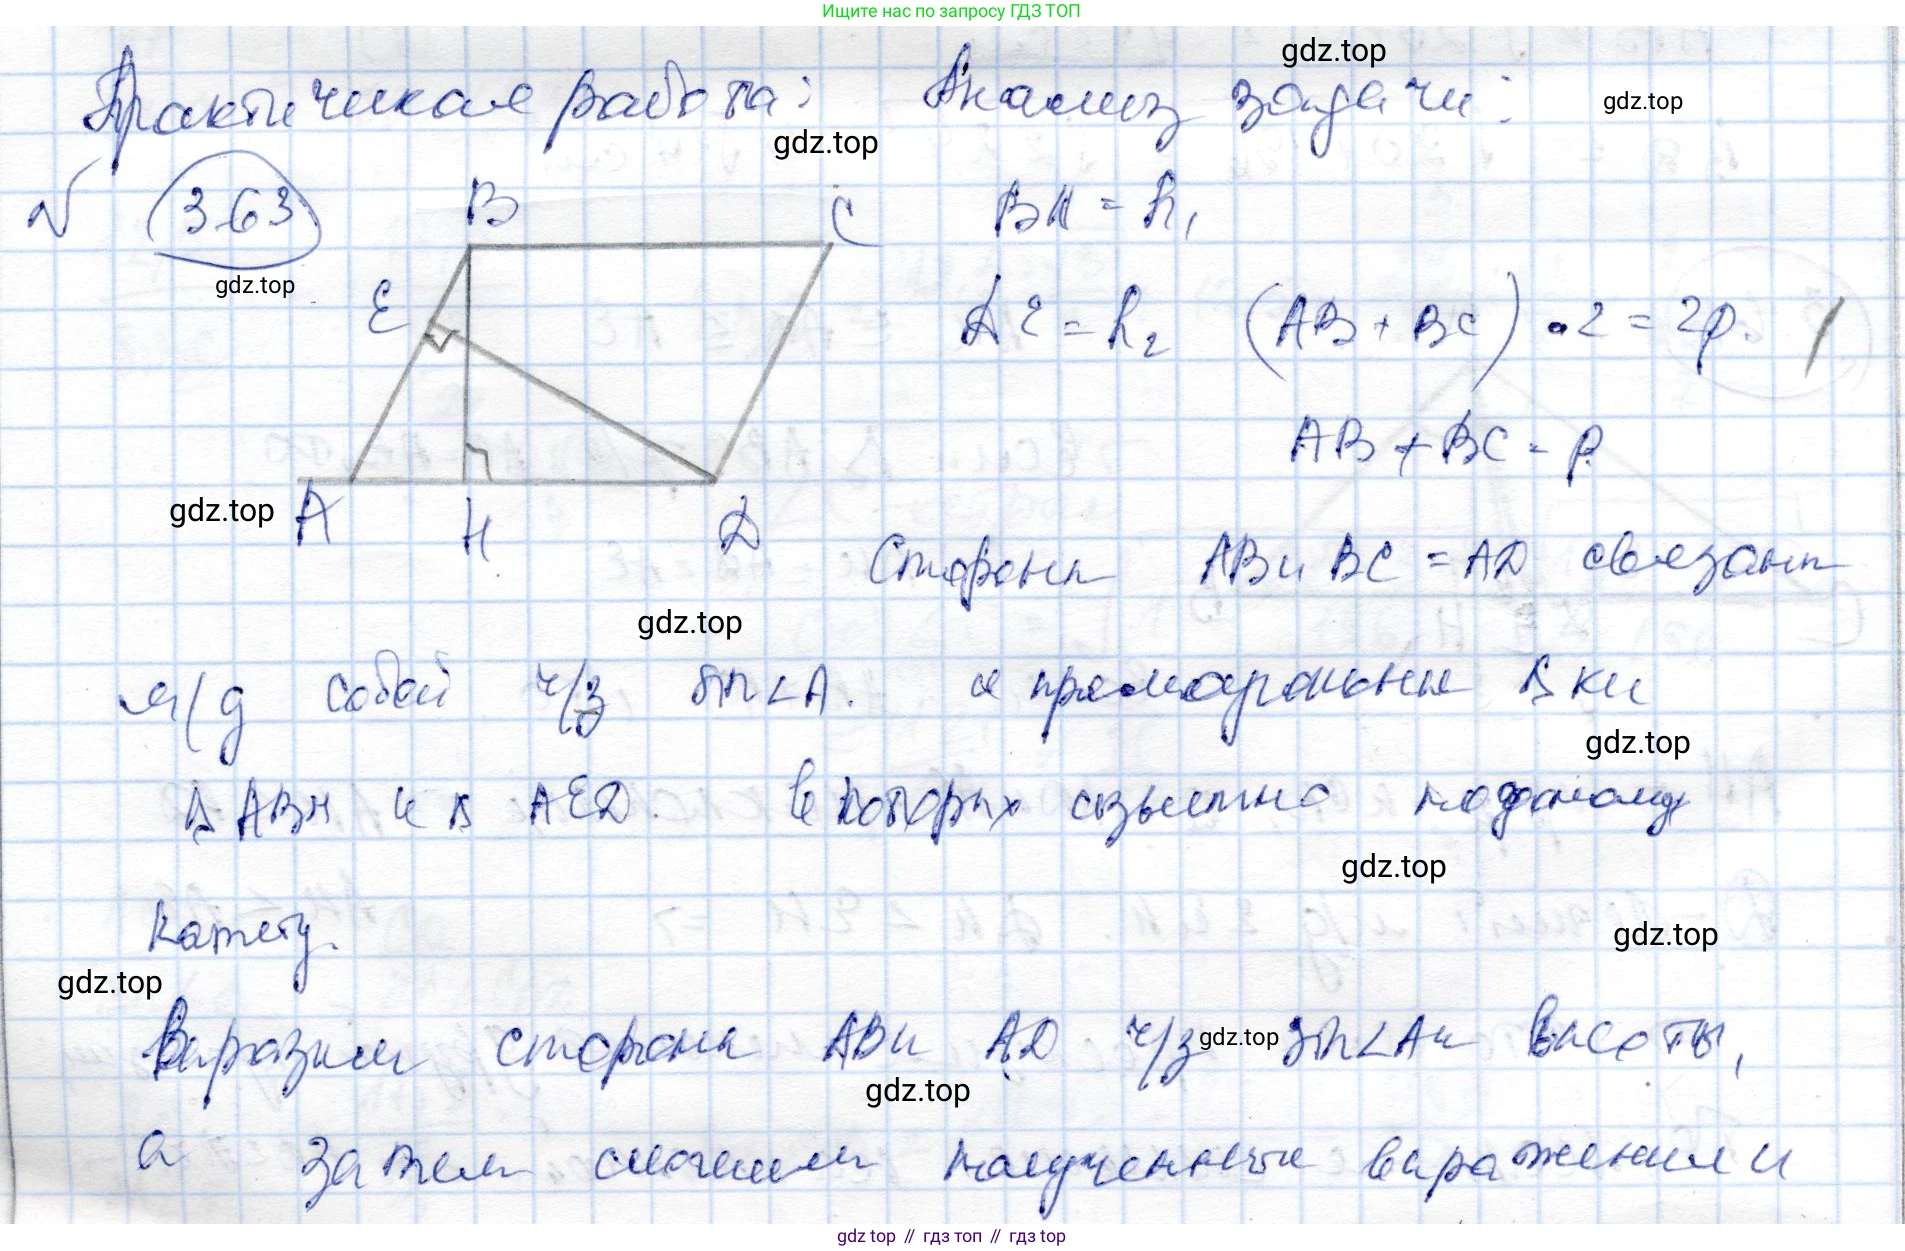 Ищите нас по запросу ГДЗ ТОП
gdz.top
Практическая работа: Анализ задачи:
gdz.top
gdz.top
№ 363 B C BH = h₁
gdz.top
E DE = h₂ (AB + BC) · 2 = 2p.
AB + BC = p
gdz.top A H D
Стороны AB и BC = AD связаны
gdz.top
м/д собой ч/з sin∠A. и прямоугольные Δ ки
gdz.top
Δ ABH и Δ AED. в которых известно по одному
gdz.top
катету.
gdz.top
gdz.top
Выразим стороны AB и AD ч/з sin∠A и высоты,
gdz.top
gdz.top
а затем сложим полученные выражения и
gdz.top // гдз топ // гдз.top